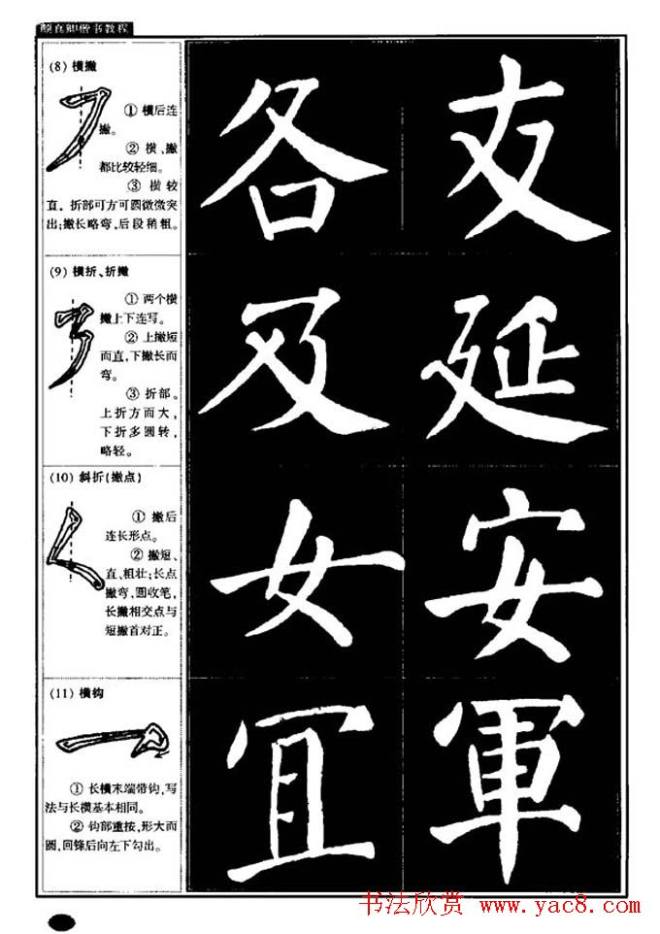 颜真卿楷书教程
(8) 横撇
① 横后连
撇。
② 横、撇
都比较轻细。
③ 横较
直，折部可方可圆微微突
出；撇长略弯，后段稍粗。
各友
(9) 横折、折撇
① 两个横
撇上下连写。
② 上撇短
而直，下撇长而
弯。
③ 折部。
上折方而大，
下折多圆转，
略轻。
及延
(10) 斜折(撇点)
① 撇后
连长形点。
② 撇短、
直、粗壮；长点
撇弯，圆收笔，
长撇相交点与
短撇首对正。
女安
(11) 横钩
① 长横末端带钩，写
法与长横基本相同。
② 钩部重按，形大而
圆，回锋后向左下勾出。
冝軍
书法欣赏 www.yac8.com